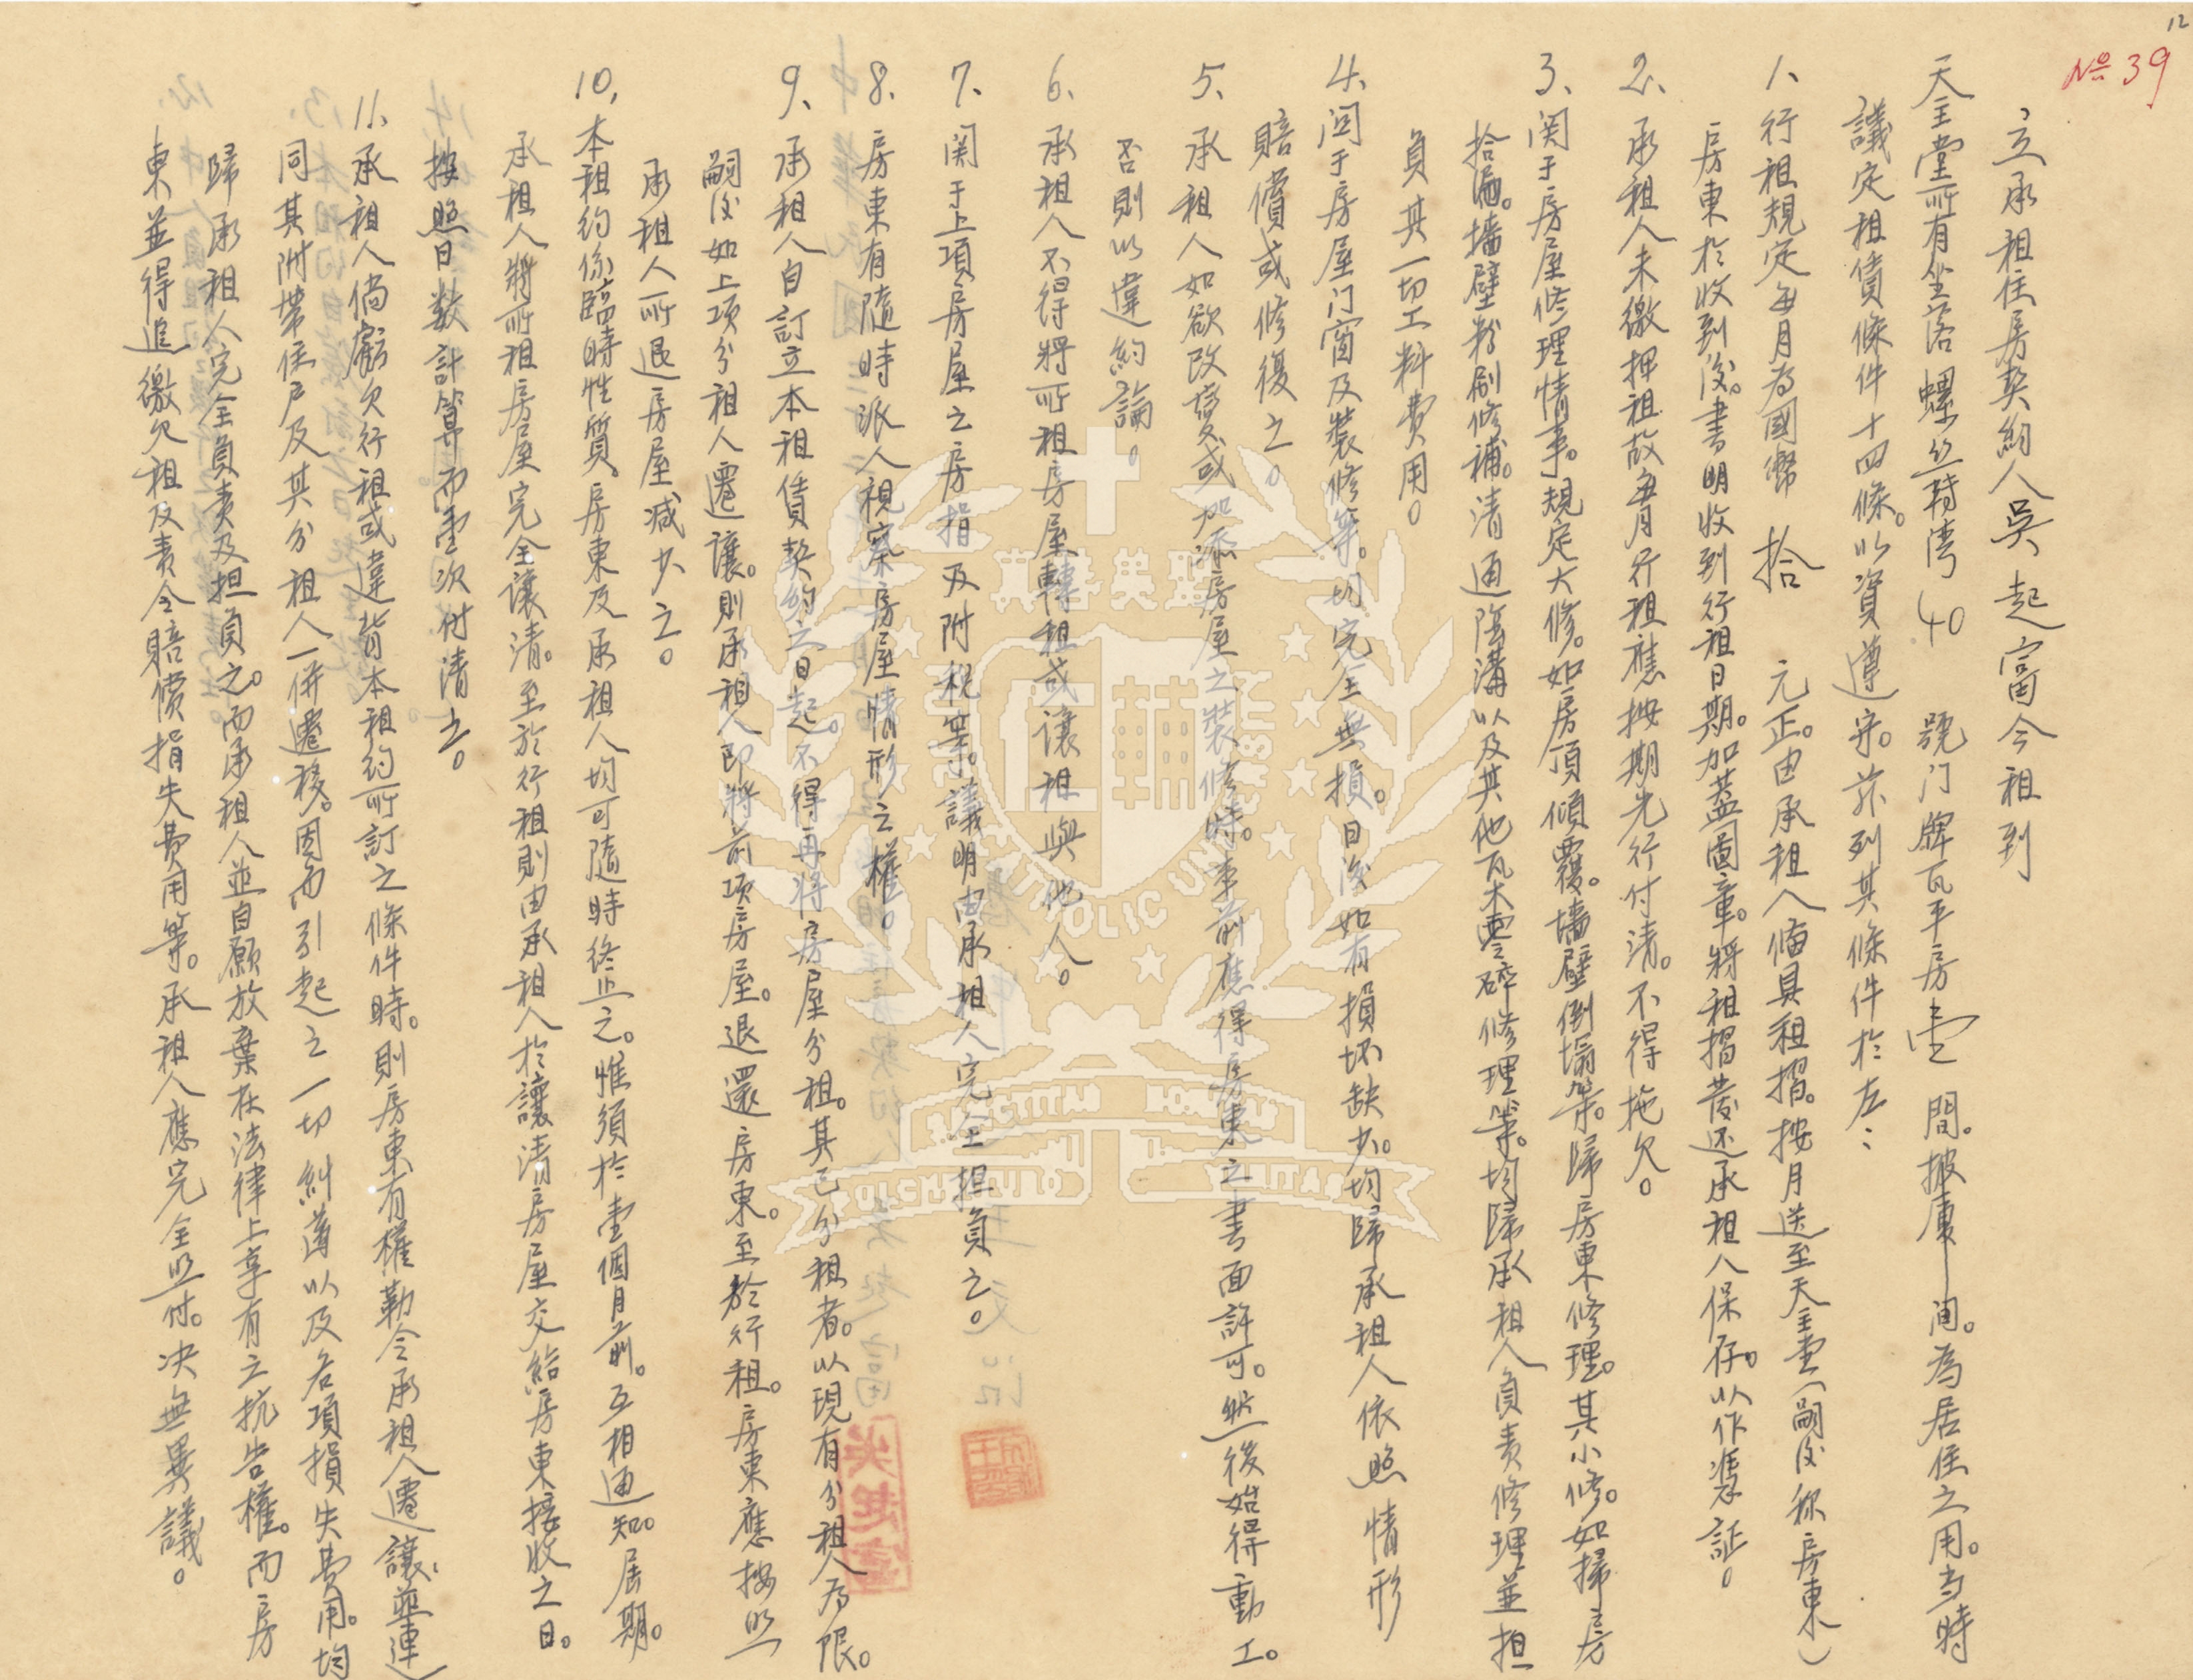 12
No 39
立承租住房契約人吳起富今租到
天主堂所有坐落螺丝轉湾40號门牌瓦平房壹間。披厦一间。為居住之用。当時
議定租賃條件十四條。以資遵守。茲列其條件於左：
1、行租規定每月為國幣拾元正。由承租人備具租摺。按月送至天主堂（嗣後称房東）
房東於收到後。書明收到行租日期。加蓋圖章。將租摺發还承租人保存。以作憑証。
2、承租人未繳押租故每月行租應按期先行付清。不得拖欠。
3、関于房屋修理情事。規定大修。如房頂傾覆。墻壁倒塌等。歸房東修理。其小修。如掃房
拾漏。墻壁粉刷修補。清通陰溝以及其他瓦木零碎修理等。均歸承租人負責修理並担
負其一切工料費用。
4、関于房屋门窗及裝修等。均完全無損。日後如有損坏缺少。均歸承租人依照情形
賠償或修復之。
5、承租人如欲改變或加添房屋之裝修時。事前應得房東之書面許可。然後始得動工。
否則以違約論。
6、承租人不得將所租房屋轉租或讓租與他人。
7、関于上項房屋之房捐及附税等。議明由承租人完全担負之。
8、房東有隨時派人視察房屋情形之權。
9、承租人自訂立本租賃契約之日起。不得再将房屋分租。其已分租者。以現有分租人為限。
嗣後如上項分租人遷讓。則承租人即將前項房屋。退還房東。至於行租。房東應按照
承租人所退房屋減少之。
10、本租約係臨時性質。房東及承租人均可隨時終止之。惟須於壹個月前。互相通知。届期。
承租人將所租房屋完全讓清。至於行租則由承租人於讓清房屋交給房東接收之日。
按照日数計算而壹次付清之。
11、承租人倘虧欠行租或違背本租約所訂之條件時。則房東有權勒令承租人遷讓、並連
同其附帶住户及其分租人一併遷移。因而引起之一切糾葛以及各項損失費用。均
歸承租人完全負責及担負之。而承租人並自願放棄在法律上享有之抗告權。而房
東並得追繳欠租及責令賠償損失費用等。承租人應完全照付。决無異議。